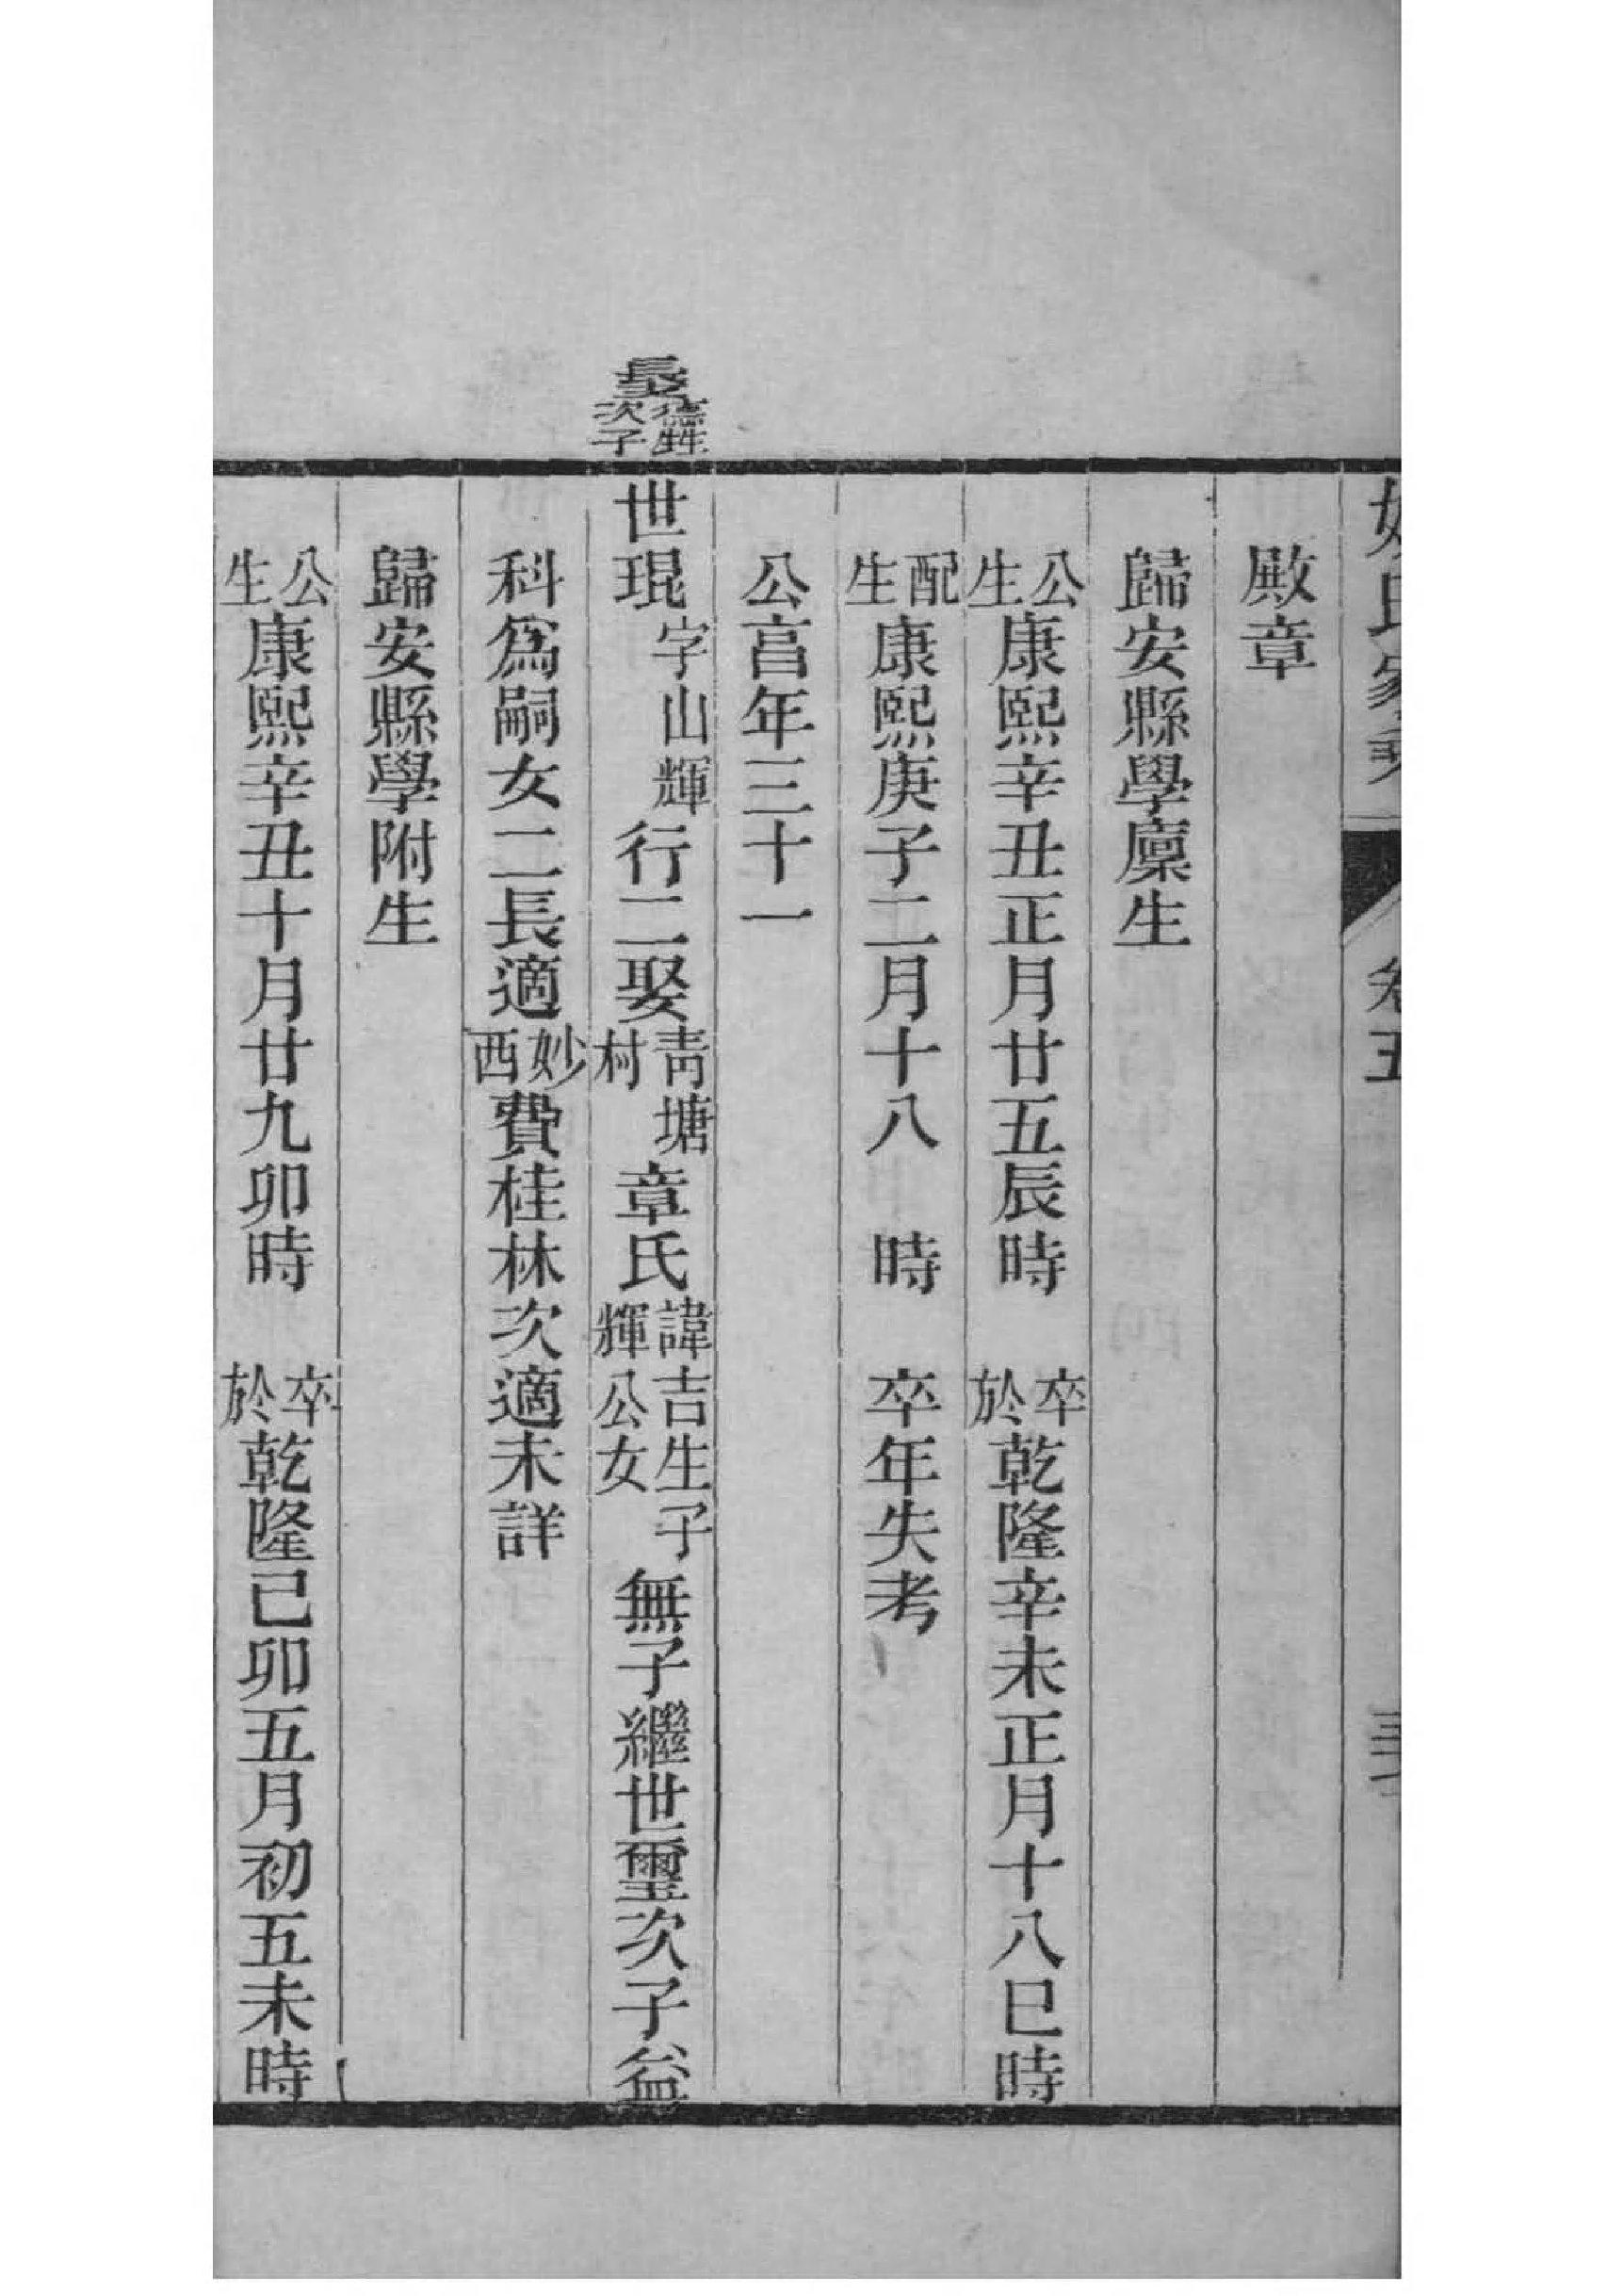 卷五
殿章
歸安縣學廩生
公生康熙辛丑正月廿五辰時　卒於乾隆辛未正月十八巳時
配生康熙庚子二月十八　時　卒年失考
公亯年三十一
德甡次子
世琨字山輝行二娶青塘村章氏諱吉生子輝公女子無子繼世璽次子益
科爲嗣女二長適妙西費桂林次適未詳
歸安縣學附生
公生康熙辛丑十月廿九卯時　卒於乾隆己卯五月初五未時